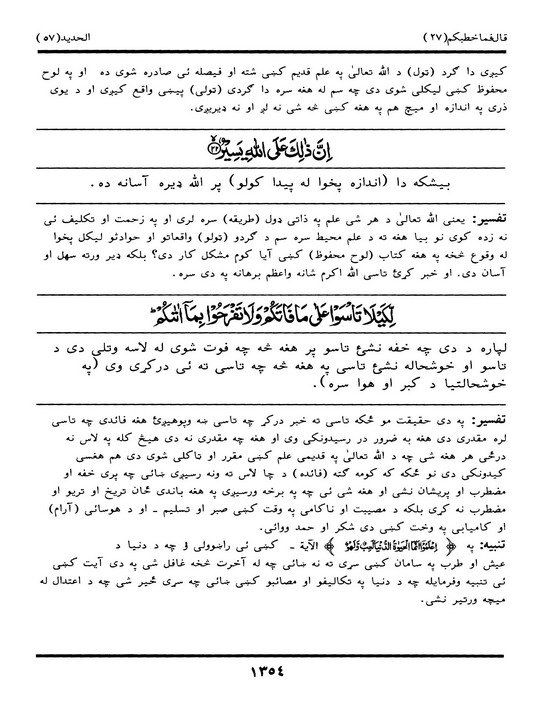 قال فما خطبكم(۲۷) الحديد(۵۷)
کیږی دا گرد (ټول) د الله تعالیٰ په علم قدیم کښی شته او فیصله ئی صادره شوی ده او په لوح
محفوظ کښی لیکلی شوی دی چه سم له هغه سره دا گردی (ټولی) پیښی واقع کیږی او د یوی
ذری په اندازه او میچ هم په هغه کښی څه شی نه لږ او نه ډیریږی.
اِنَّ ذٰلِكَ عَلَى اللهِ يَسِيْرٌ ﴿۲۲﴾
بیشکه دا (اندازه پخوا له پیدا کولو) پر الله ډیره آسانه ده.
تفسیر: یعنی الله تعالیٰ د هر شی علم په ذاتی ډول (طریقه) سره لری او په زحمت او تکلیف ئی
نه زده کوی نو بیا هغه ته د علم محیط سره سم د گردو (ټولو) واقعاتو او حوادثو لیکل پخوا
له وقوع څخه په هغه کتاب (لوح محفوظ) کښی آیا کوم مشکل کار دی؟ بلکه ډیر ورته سهل او
آسان دی. او خبر کړئ تاسی الله اکرم شانه واعظم برهانه په دی سره.
لِّكَيْلَا تَأْسَوْا عَلٰى مَا فَاتَكُمْ وَلَا تَفْرَحُوْا بِمَآ اٰتٰىكُمْ ؕ
لپاره د دی چه خفه نشئ تاسو پر هغه څه چه فوت شوی له لاسه وتلی دی د
تاسو او خوشحاله نشئ تاسی په هغه څه چه تاسی ته ئی درکړی وی (په
خوشحالتیا د کبر او هوا سره).
تفسیر: په دی حقیقت مو ځکه تاسی ته خبر درکړ چه تاسی ښه وپوهیږئ هغه فائدی چه تاسی
لره مقدری دی هغه به ضرور در رسیدونکی وی او هغه چه مقدری نه دی هیڅ کله په لاس نه
درځی هر هغه شی چه د الله تعالیٰ په قدیمی علم کښی مقرر او ټاکلی شوی دی هم هغسی
کیدونکی دی نو ځکه که کومه گټه (فائده) د چا لاس ته ونه رسیږی ښائی چه پری خفه او
مضطرب او پریشان نشی او هغه شی ئی چه په برخه ورسیږی په هغه باندی ځان تریخ او تریو او
مضطرب نه کړی بلکه د مصیبت او ناکامی په وقت کښی صبر او تسلیم ـ او د هوسائی (آرام)
او کامیابی په وخت کښی دی شکر او حمد ووائی.
تنبیه: په ﴿ اِعْلَمُوْٓا اَنَّمَا الْحَيٰوةُ الدُّنْيَا لَعِبٌ وَّلَهْوٌ ﴾ الآية ـ کښی ئی راښوولی ؤ چه د دنیا د
عیش او طرب په سامان کښی سړی ته نه ښائی چه له آخرت څخه غافل شی په دی آیت کښی
ئی تنبیه وفرمایله چه د دنیا په تکالیفو او مصائبو کښی ښائی چه سړی مخبر شی چه د اعتدال له
میچه ورتیر نشی.
۱۳۵٤